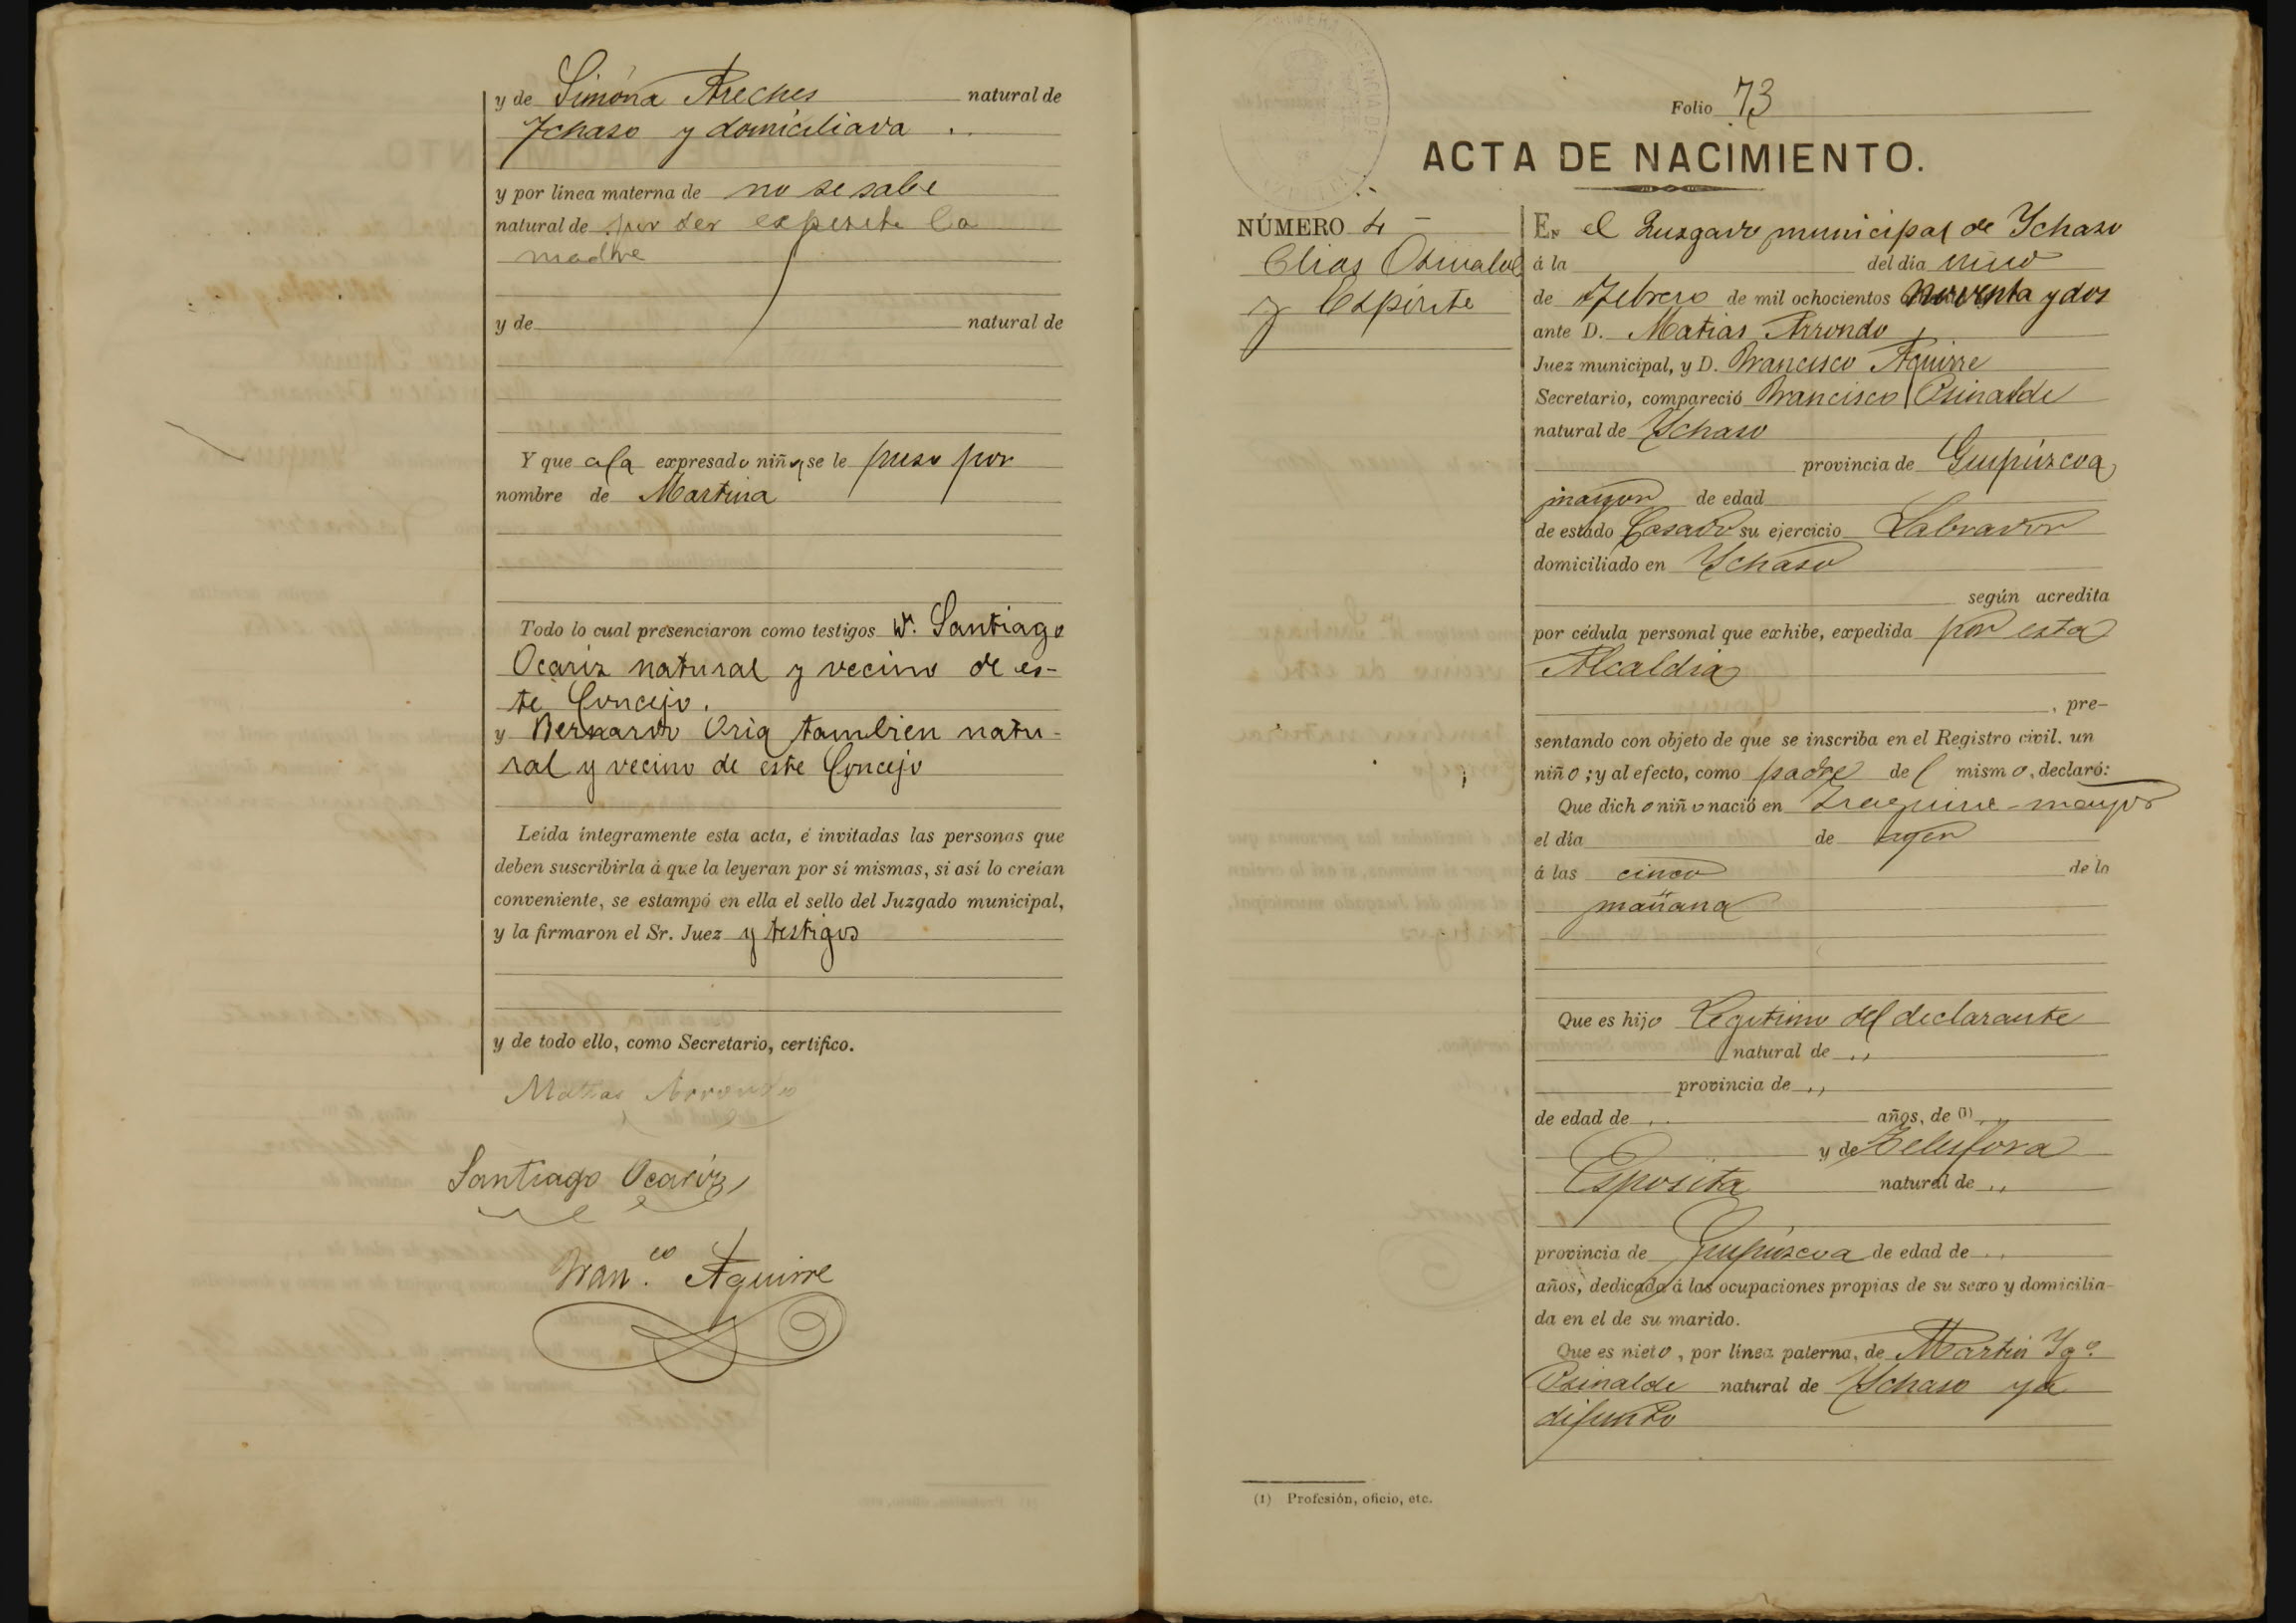 y de Simona Areches natural de
Ychaso y domiciliada . .
y por línea materna de no se sabe
natural de por ser esposita la
madre
y de natural de
Y que a la expresado niña se le puso por
nombre de Martina
Todo lo cual presenciaron como testigos Dn. Santiago
Ocariz natural y vecino de es-
te Concejo.
y Bernardo Oria tambien natu-
ral y vecino de este Concejo
Leída íntegramente esta acta, é invitadas las personas que
deben suscribirla á que la leyeran por sí mismas, si así lo creían
conveniente, se estampó en ella el sello del Juzgado municipal,
y la firmaron el Sr. Juez y testigos
y de todo ello, como Secretario, certifico.
Matias Arrondo
Santiago Ocariz
Fran.co Aguirre
Folio 73
ACTA DE NACIMIENTO.
NÚMERO 4
Elias Osinalde
y Espósite
En el Juzgado municipal de Ychaso
á la del día nueve
de Febrero de mil ochocientos noventa y dos
ante D. Matias Arrondo
Juez municipal, y D. Francisco Aguirre
Secretario, compareció Francisco Osinalde
natural de Ychaso
provincia de Guipúzcoa
mayor de edad
de estado Casado su ejercicio Labrador
domiciliado en Ychaso
según acredita
por cédula personal que exhibe, expedida por esta
Alcaldia
, pre-
sentando con objeto de que se inscriba en el Registro civil. un
niño; y al efecto, como padre del mismo, declaró:
Que dicho niño nació en mayor
el día de ayer
á las cinco de la
mañana
Que es hijo Legitimo del declarante
natural de ,,
provincia de ,,
de edad de ,, años, de (1) ,,
y de Telesfora
Esposita natural de ,,
provincia de Guipúzcoa de edad de . .
años, dedicada á las ocupaciones propias de su sexo y domicilia-
da en el de su marido.
Que es nieto, por línea paterna, de Martin Ygo.
Osinalde natural de Ychaso ya
difunto
(1) Profesión, oficio, etc.